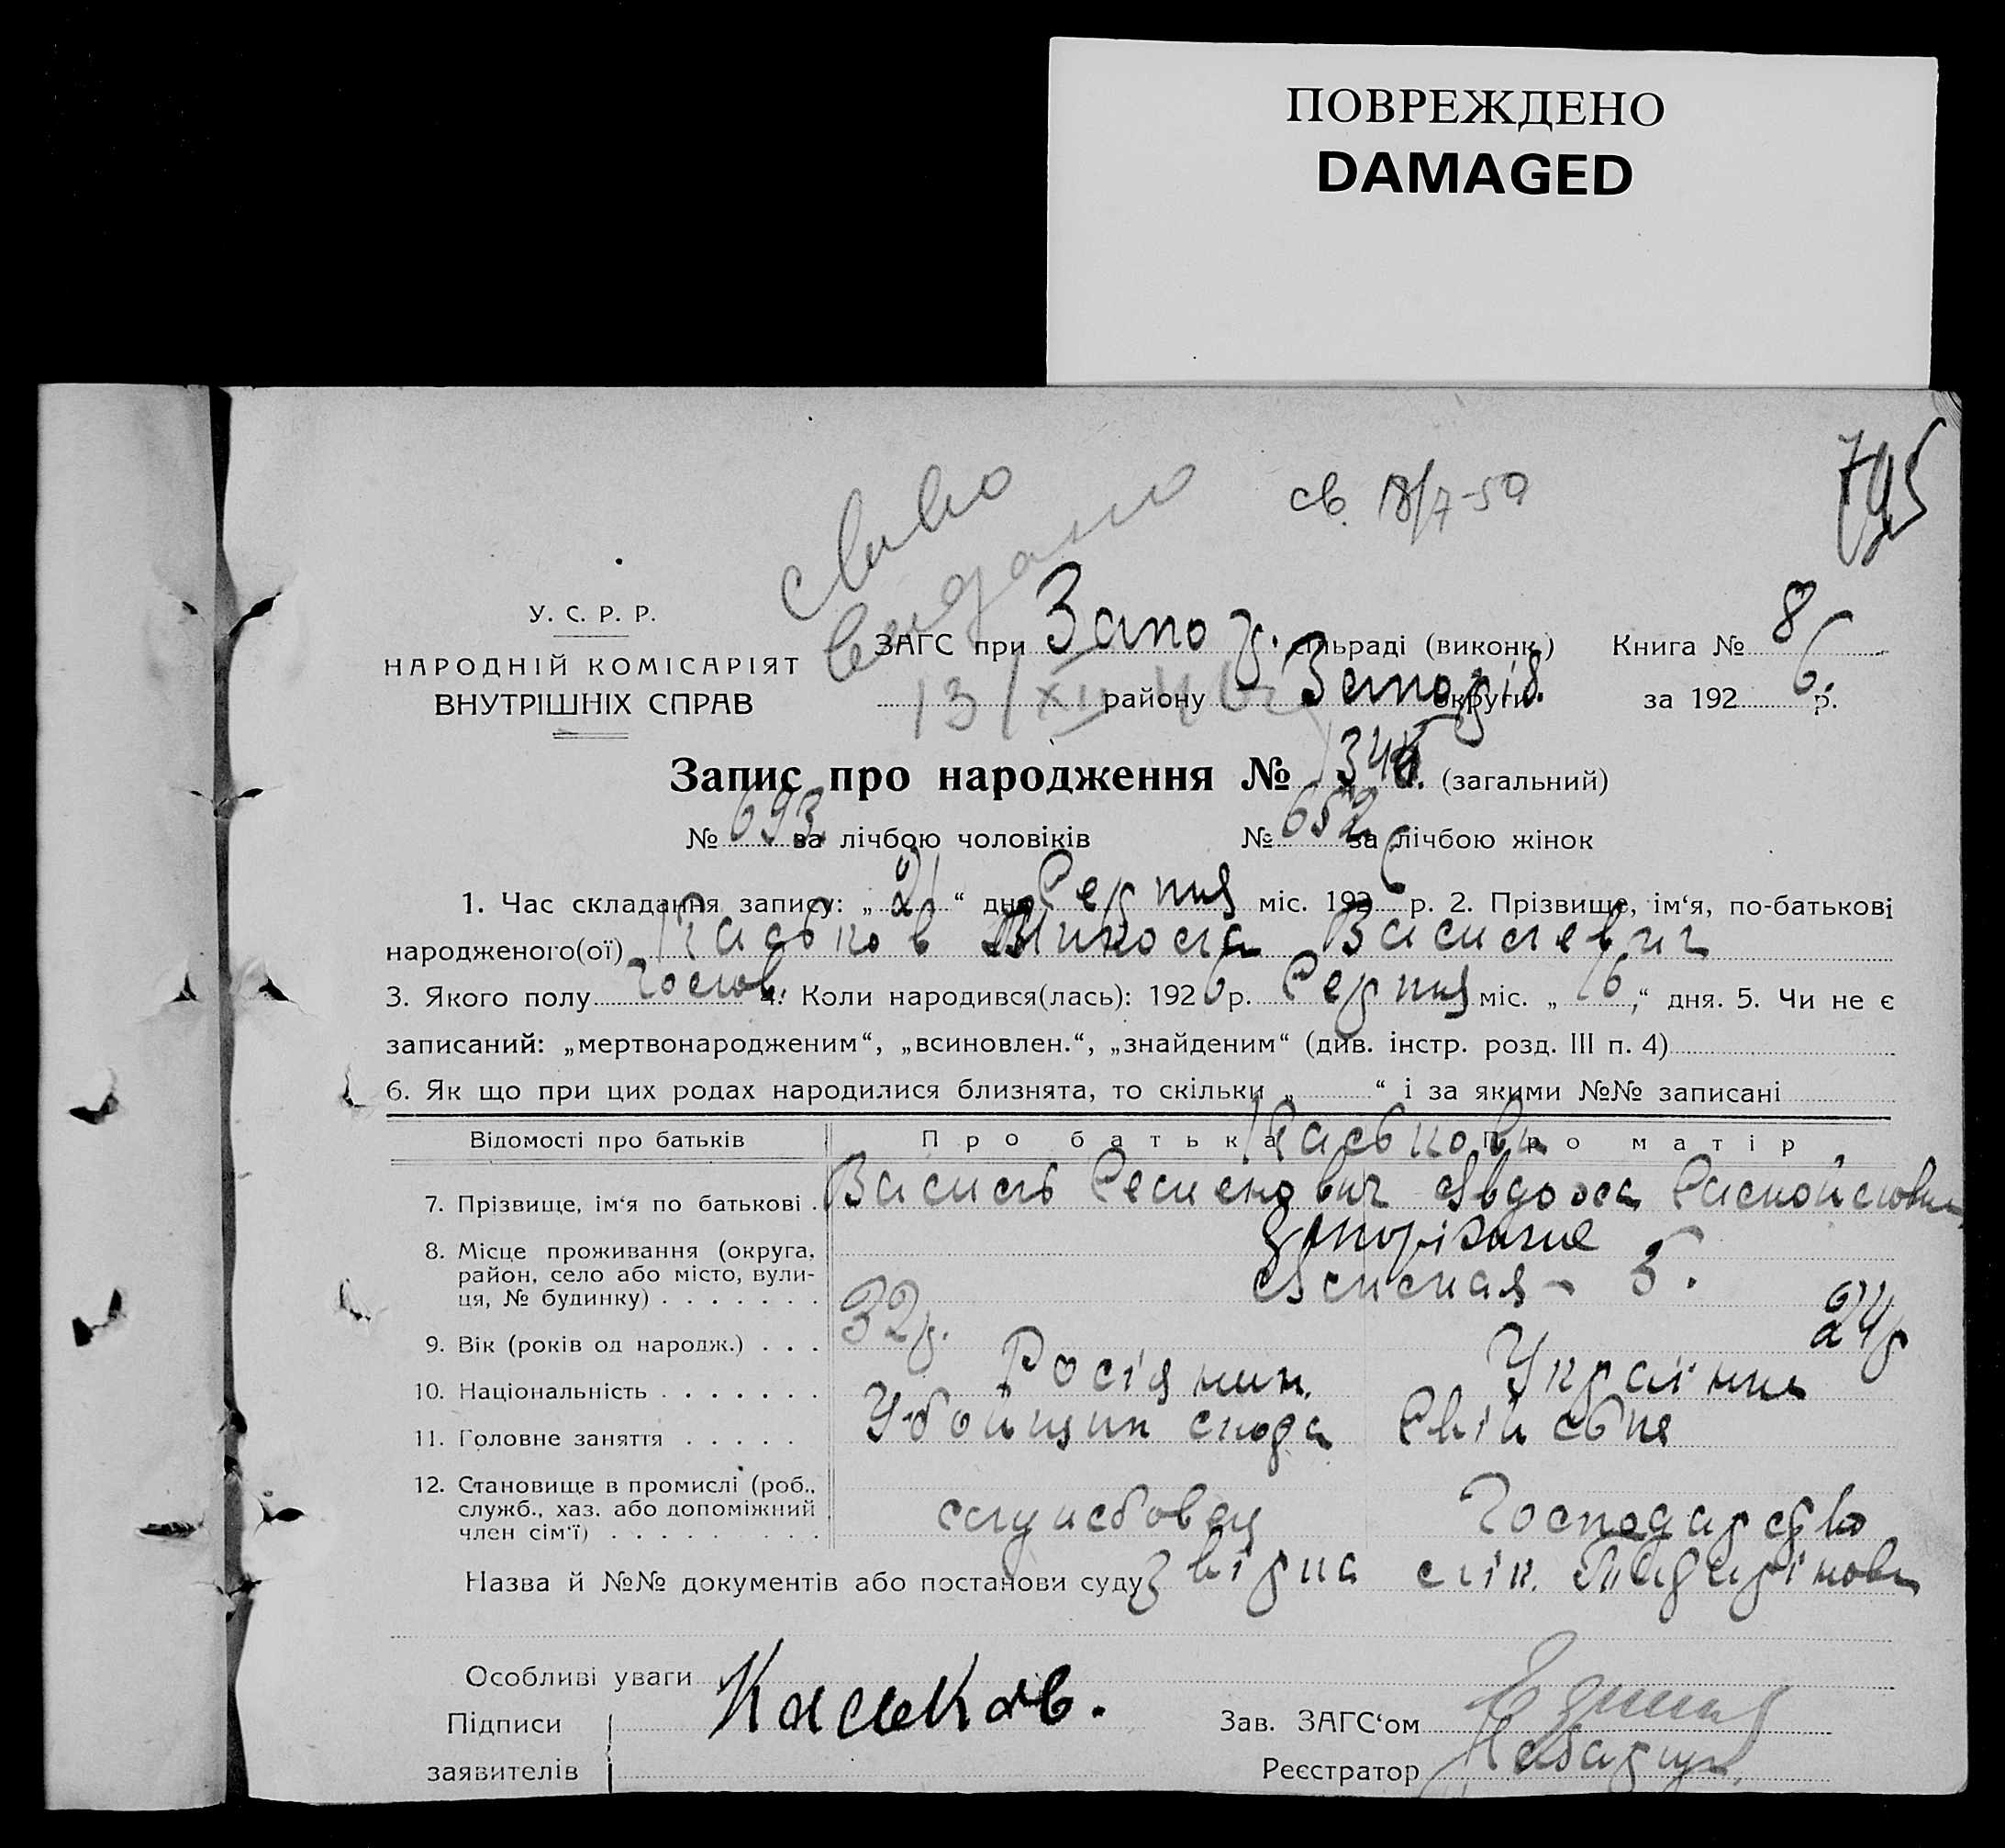 ПОВРЕЖДЕНО
DAMAGED
795
св. 18/7-59
У. С. Р. Р.
НАРОДНІЙ КОМІСАРІЯТ
ВНУТРІШНІХ СПРАВ
видано
13/XII
ЗАГС при Запор. сільраді (виконк.) Книга № 8
району Запоріз. округи за 1926 р.
Запис про народження № 1345. (загальний)
№ 693 за лічбою чоловіків № 652 за лічбою жінок
1. Час складання запису: „21“ дня Серпня міс. 1926 р. 2. Прізвище, ім‘я, по-батькові
народженого(ої) Каськов Микола Василевич
3. Якого полу чолов. 4. Коли народився(лась): 1926 р. Серпня міс. „16,“ дня. 5. Чи не є
записаний: „мертвонародженим“, „всиновлен.“, „знайденим“ (див. інстр. розд. III п. 4)
6. Як що при цих родах народилися близнята, то скільки „ “ і за якими №№ записані
Відомості про батьків Про батька Про матір
Каськови
7. Прізвище, ім‘я по батькові . Василь Семенович Явдоха
8. Місце проживання (округа, район, село або місто, вулиця, № будинку) . . . . . . . Запоріжжє
5.
9. Вік (років од народж.) . . . 32 р. 24 р
10. Національність . . . . . . . Росіянин. Українка
11. Головне заняття . . . . . Убойщик скода Хатня
12. Становище в промислі (роб., служб., хаз. або допоміжний член сім‘ї) . . . . . . . . службовец Господарство
Назва й №№ документів або постанови суду
Особливі уваги
Підписи заявителів Каськов.
Зав. ЗАГС‘ом
Реєстратор